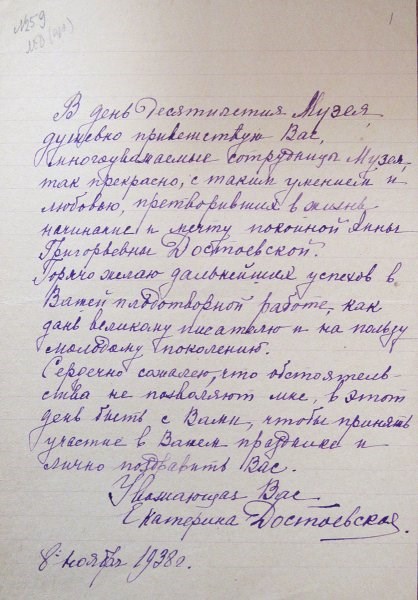 №59
1
В день Десятилетия Музея
душевно приветствую Вас,
многоуважаемые сотрудницы Музея,
так прекрасно, с таким умением и
любовью, претворивших в жизнь
начинание и мечту покойной Анны
Григорьевны Достоевской.
Горячо желаю дальнейших успехов в
Вашей плодотворной работе, как
дань великому писателю и на пользу
молодому поколению.
Сердечно сожалею, что обстоятель-
ства не позволяют мне, в этот
день быть с Вами, чтобы принять
участие в Вашем празднике и
лично поздравить Вас.
Уважающая Вас
Екатерина Достоевская.
8: ноября 1938 г.